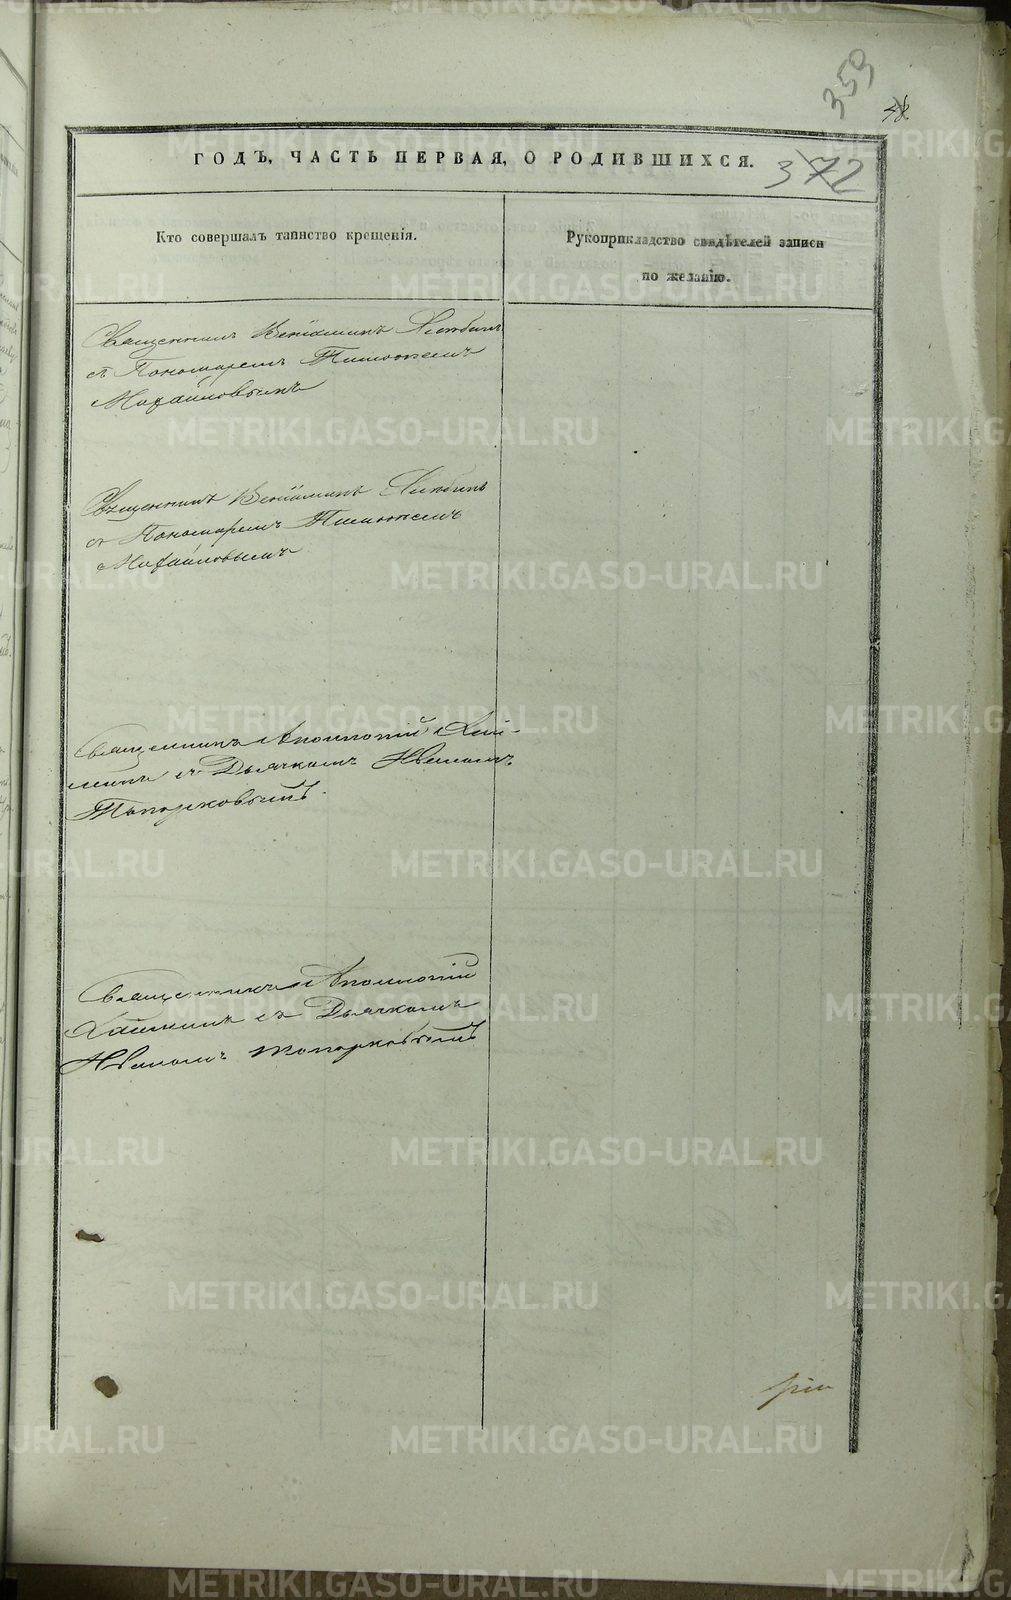 359
48.
ГОДЪ, ЧАСТЬ ПЕРВАЯ, О РОДИВШИХСЯ.
372
Кто совершалъ таинство крещенія.
Рукоприкладство свидѣтелей записи
по желанію.
Священникъ Веніаминъ
съ Пономаремъ Тимофеемъ
Михайловымъ
Священникъ Веніаминъ
съ Пономаремъ Тимофеемъ
Михайловымъ
Священникъ Аполлотій
съ Дьячкомъ Иваномъ
Топорковымъ.
Священникъ Аполлотій
съ Дьячкомъ
Иваномъ Топорковымъ
METRIKI.GASO-URAL.RU